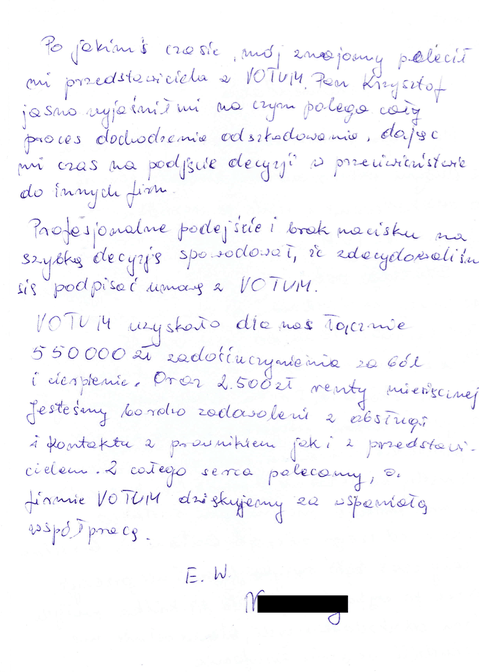 Po jakimś czasie, mój znajomy polecił
mi przedstawiciela z VOTUM. Pan Krzysztof
jasno wyjaśnił mi na czym polega cały
proces dochodzenia odszkodowania, dając
mi czas na podjęcie decyzji w przeciwieństwie
do innych firm.
Profesjonalne podejście i brak nacisku na
szybką decyzję spowodował, że zdecydowaliśmy
się podpisać umowę z VOTUM.
VOTUM uzyskało dla nas łącznie
550000 zł zadośćuczynienia za ból
i cierpienie. Oraz 2.500zł renty miesięcznej
Jesteśmy bardzo zadowoleni z obsługi
i kontaktu z prawnikiem jak i z przedstawi-
cielem. Z całego serca polecamy, a
firmie VOTUM dziękujemy za wspaniałą
współpracę.
E. W.